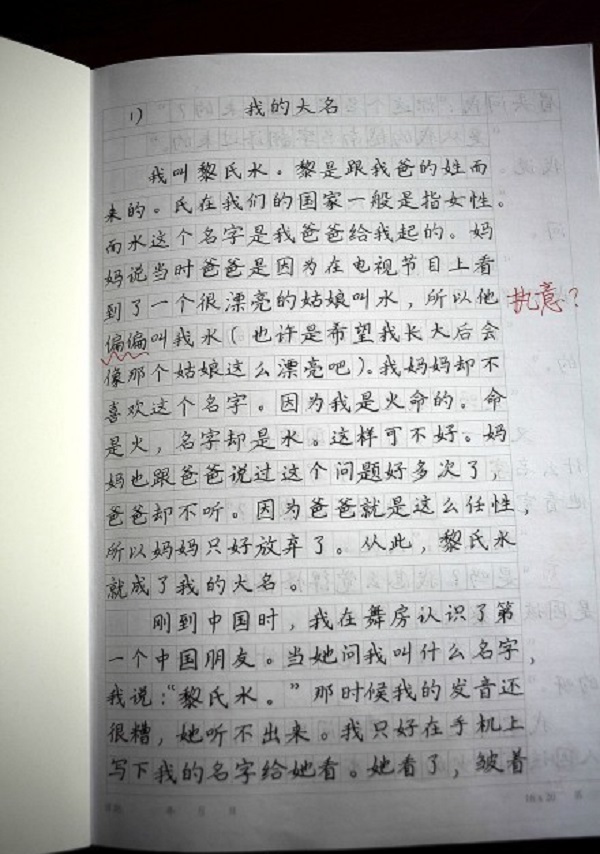 1) 我的大名
我叫黎氏水。黎是跟我爸的姓而
来的。氏在我们的国家一般是指女性。
而水这个名字是我爸爸给我起的。妈
妈说当时爸爸是因为在电视节目上看
到了一个很漂亮的姑娘叫水，所以他 执意？
偏偏叫我水（也许是希望我长大后会
像那个姑娘这么漂亮吧）。我妈妈却不
喜欢这个名字。因为我是火命的。命
是火，名字却是水。这样可不好。妈
妈也跟爸爸说过这个问题好多次了，
爸爸却不听。因为爸爸就是这么任性，
所以妈妈只好放弃了。从此，黎氏水
就成了我的大名。
刚到中国时，我在舞房认识了第
一个中国朋友。当她问我叫什么名字，
我说：“黎氏水。”那时候我的发音还
很糟，她听不出来。我只好在手机上
写下我的名字给她看。她看了，皱着
16×20